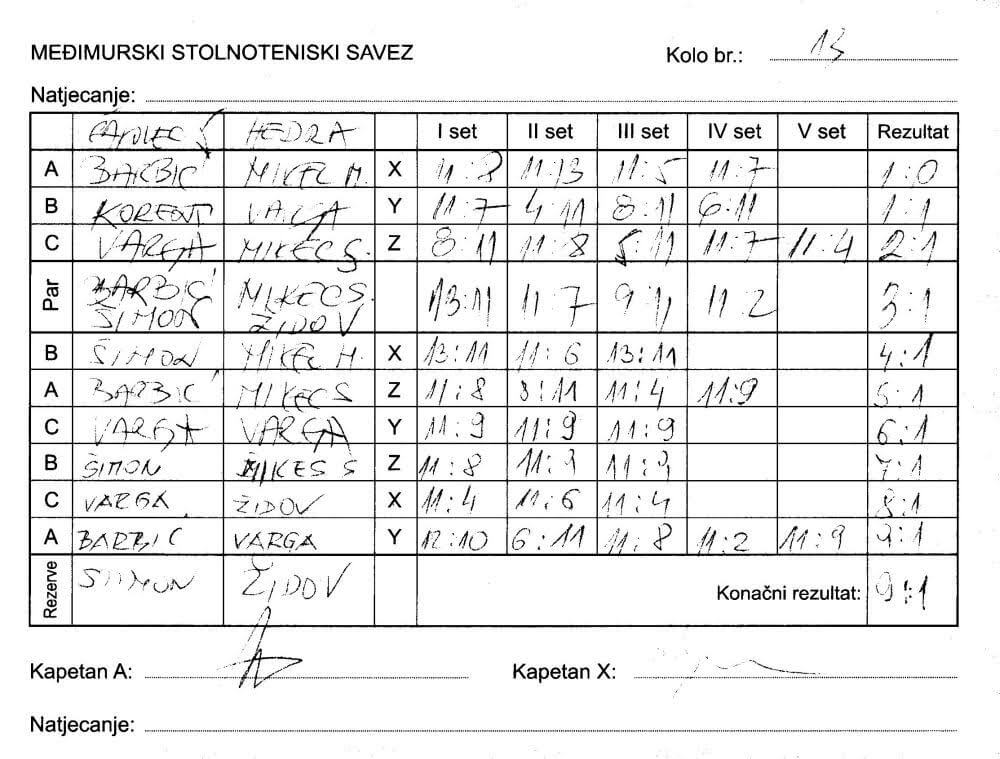 MEĐIMURSKI STOLNOTENISKI SAVEZ Kolo br.: 13
Natjecanje:
HEDRA I set II set III set IV set V set Rezultat
A BARBIĆ MIKEC M. X 11:8 11:13 11:5 11:7 1:0
B KORENT VARGA Y 11:7 4:11 8:11 6:11 1:1
C VARGA MIKEC S. Z 8:11 11:8 5:11 11:7 11:4 2:1
Par BARBIĆ ŠIMON MIKEC S. ŽIDOV 13:11 11:7 9:11 11:2 3:1
B ŠIMON MIKEC M. X 13:11 11:6 13:11 4:1
A BARBIĆ MIKEC S Z 11:8 8:11 11:4 11:9 5:1
C VARGA VARGA Y 11:9 11:9 11:9 6:1
B ŠIMON MIKES S Z 11:8 11:3 11:3 7:1
C VARGA ŽIDOV X 11:4 11:6 11:4 8:1
A BARBIĆ VARGA Y 12:10 6:11 11:8 11:2 11:9 9:1
Rezerve ŠIMUN ŽIDOV Konačni rezultat: 9:1
Kapetan A: Kapetan X:
Natjecanje: